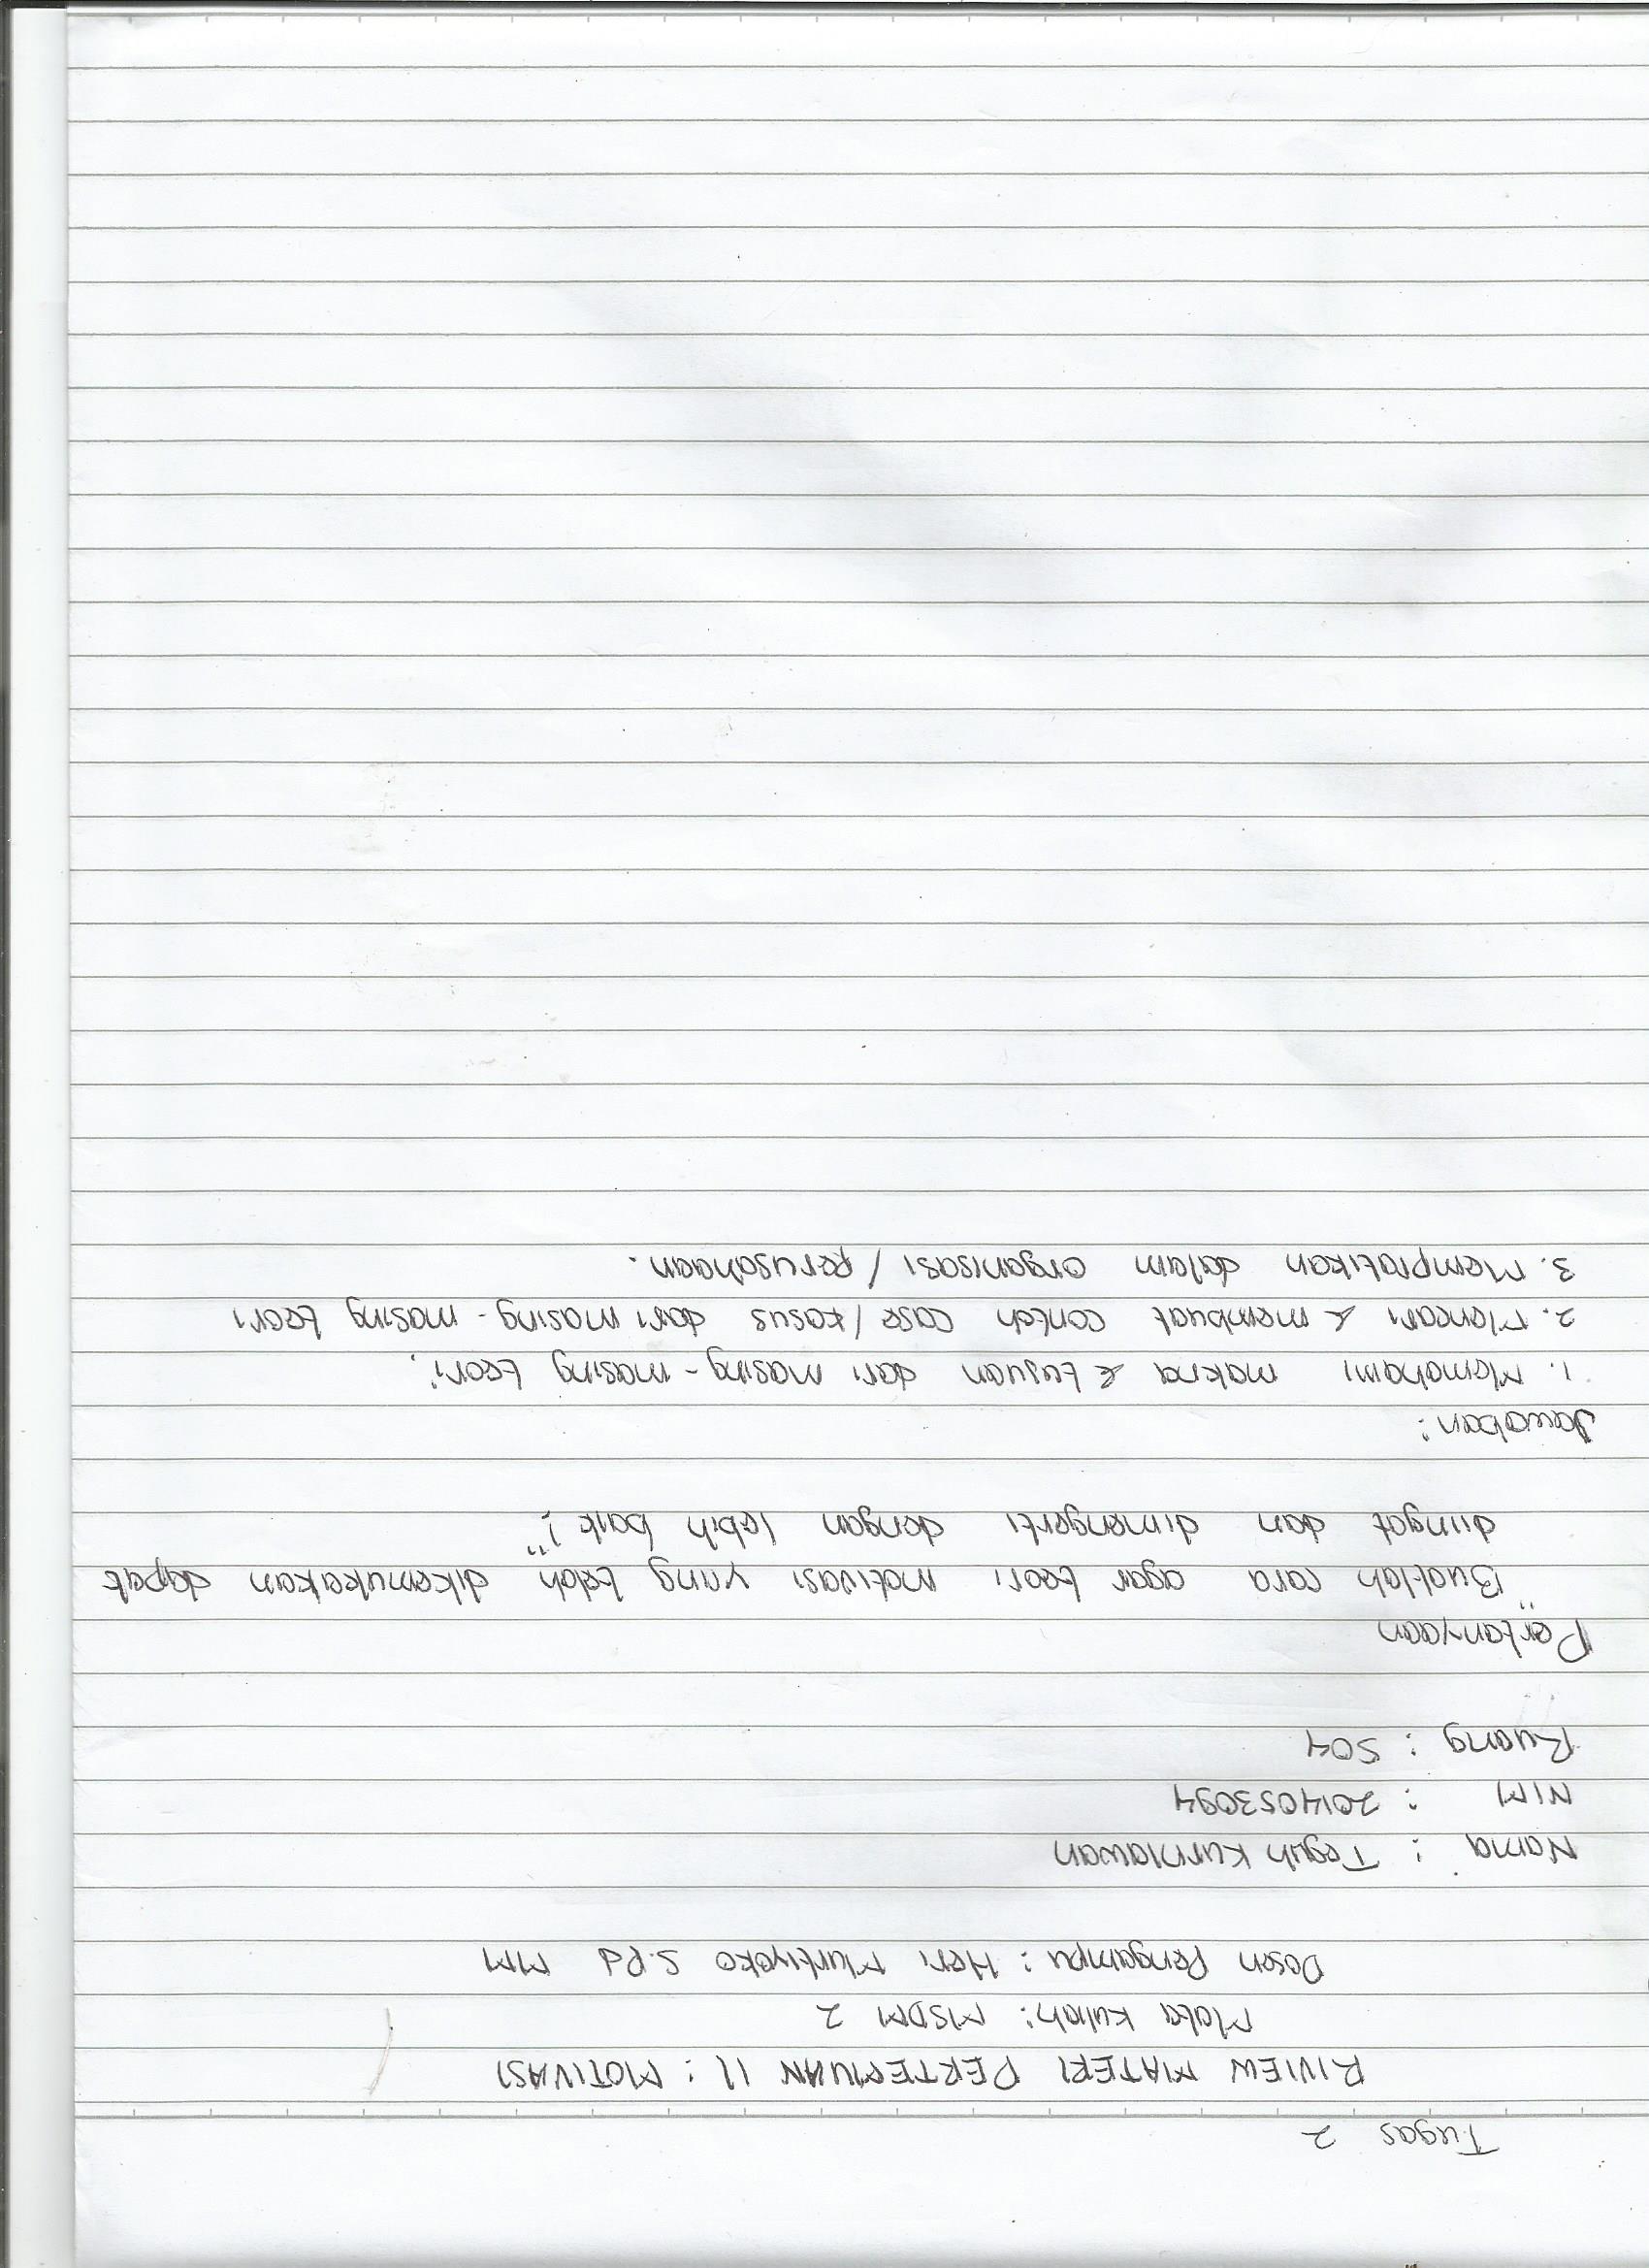 Tugas 2
RIVIEW MATERI PERTEMUAN 11 : MOTIVASI
Mata Kuliah : MSDM 2
Dosen Pengampu : Heri Murtiyoko S.Pd MM
Nama : Teguh Kurniawan
NIM : 2014053094
Ruang : 504
Pertanyaan
"Buatlah cara agar teori motivasi yang telah dikemukakan dapat
diingat dan dimengerti dengan lebih baik";
Jawaban :
1. Memahami makna & tujuan dari masing-masing teori.
2. Mencari & membuat contoh case / kasus dari masing-masing teori
3. Mempratikan dalam organisasi / perusahaan.